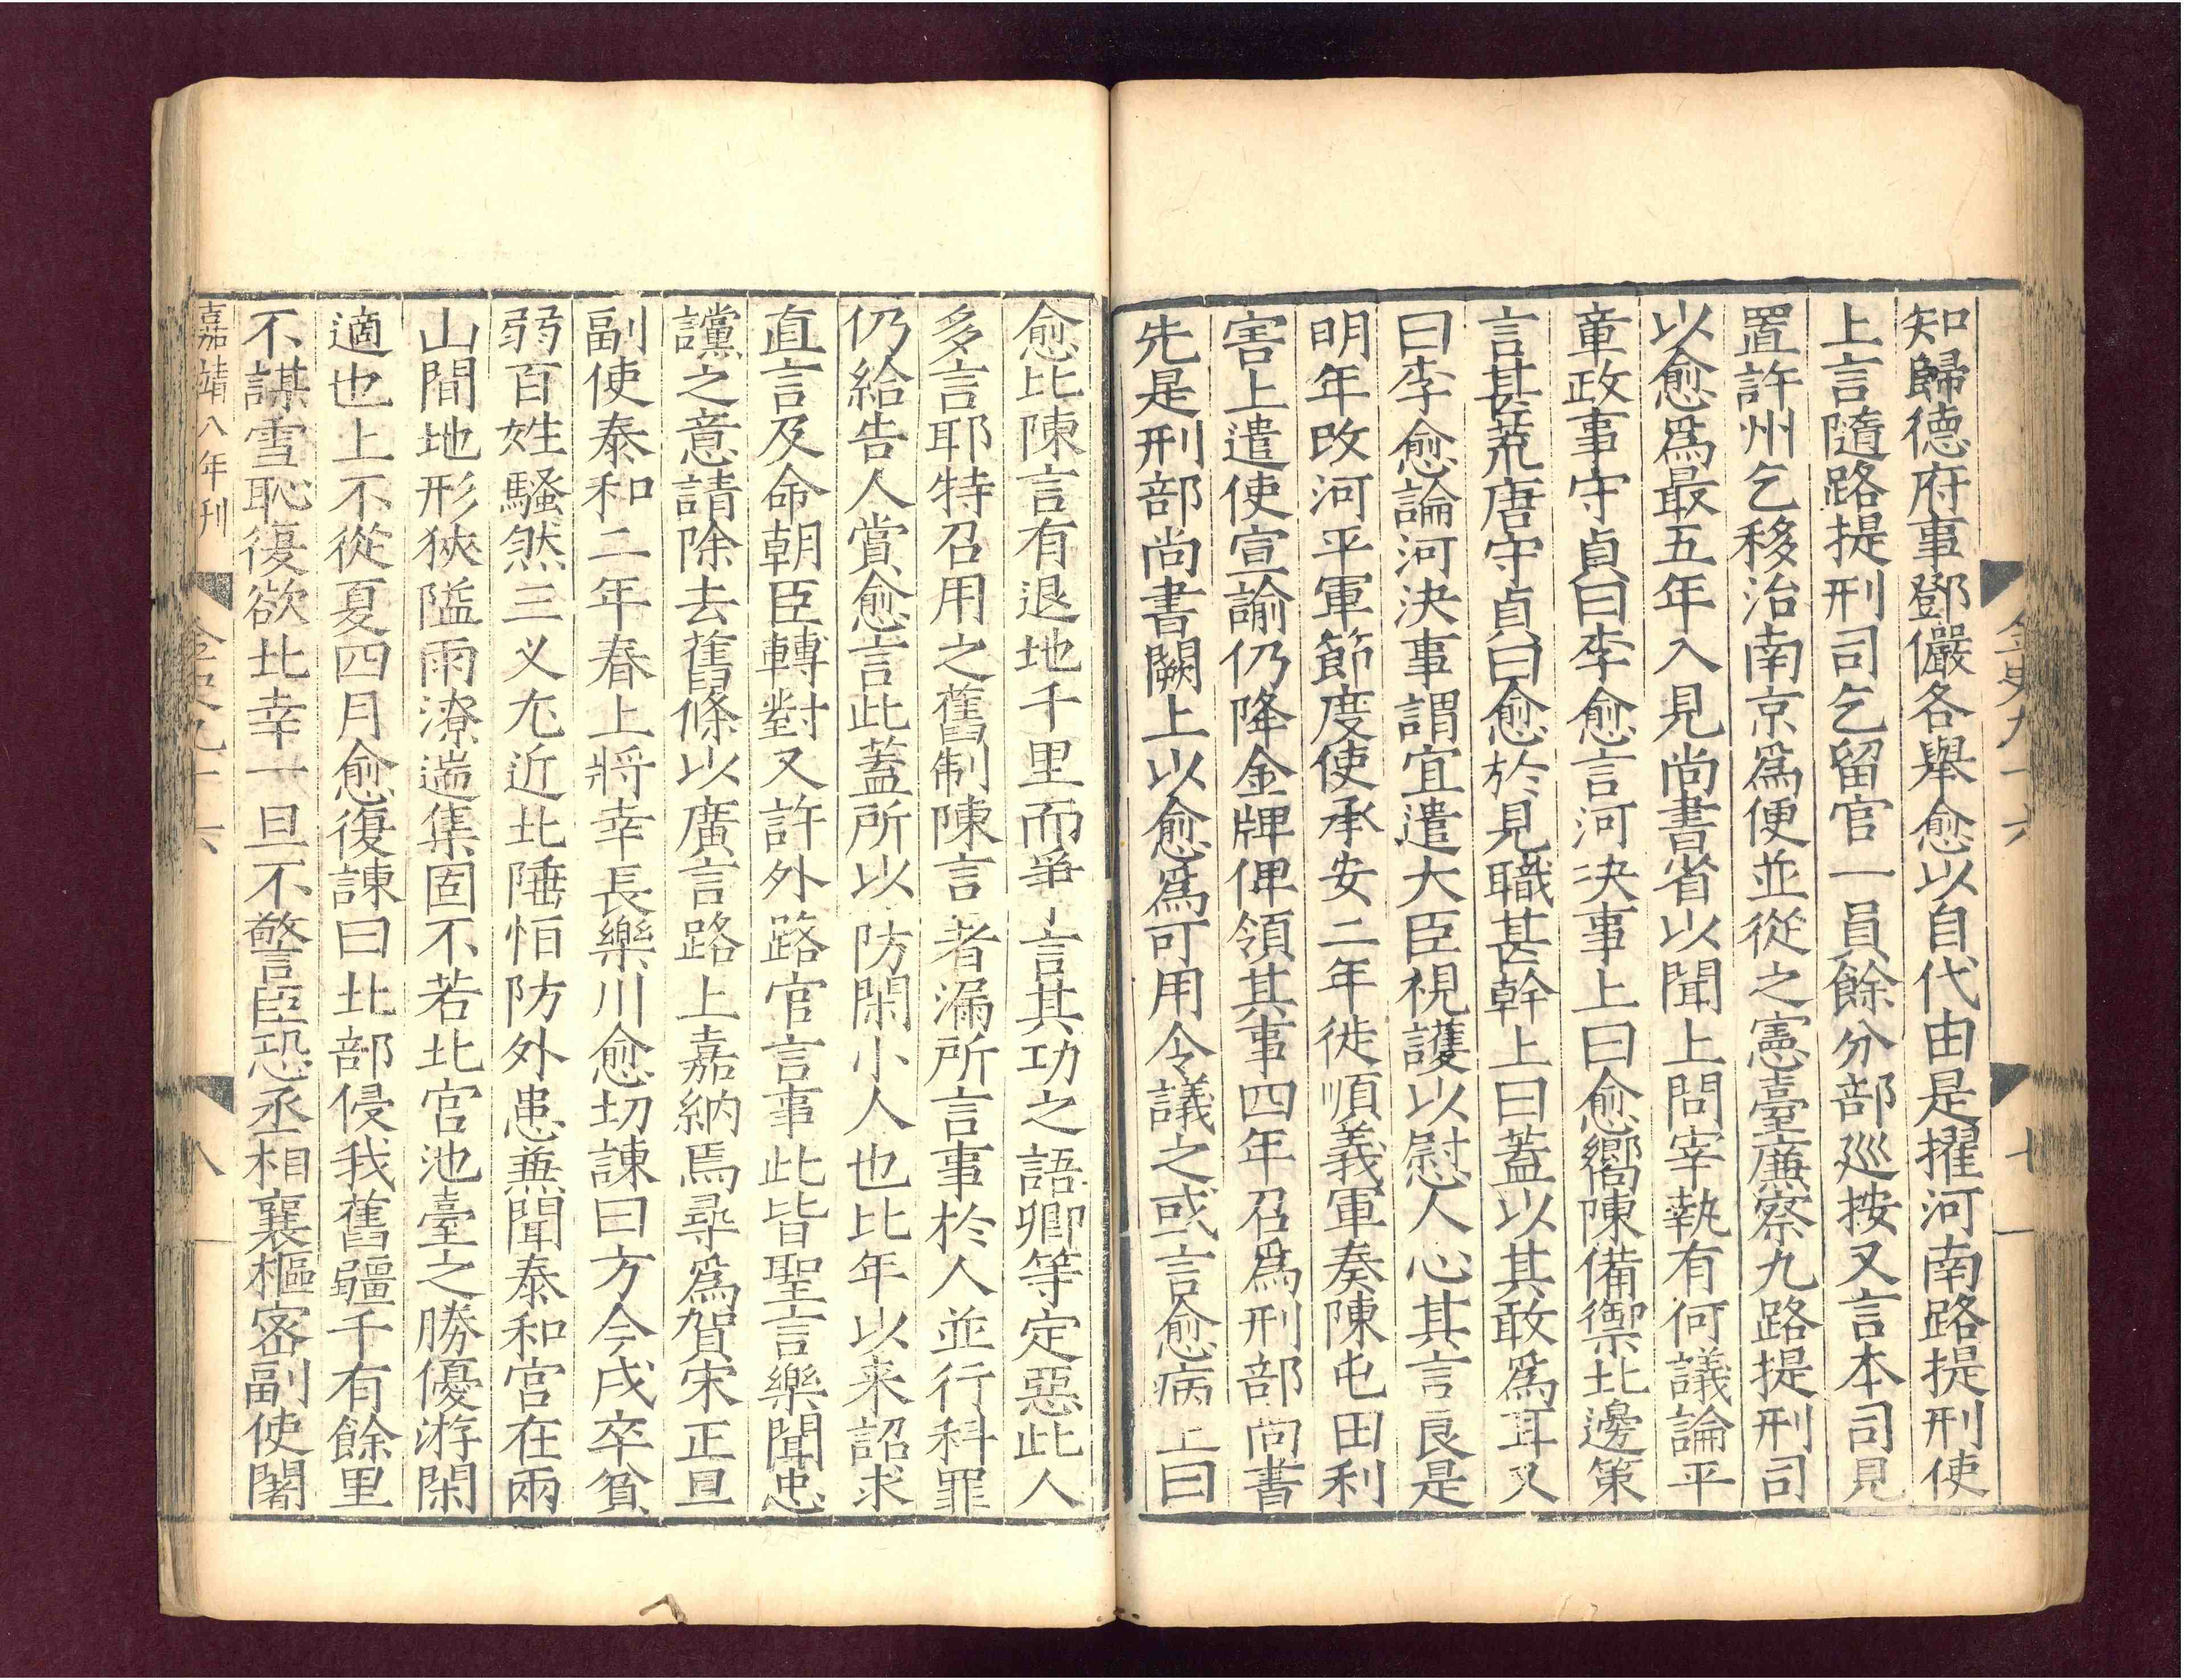 知歸德府事鄧儼各舉愈以自代由是擢河南路提刑使
上言隨路提刑司乞留官一員餘分部巡按又言本司見
置許州乞移治南京爲便並從之憲臺廉察九路提刑司
以愈爲最五年入見尚書省以聞上問宰執有何議論平
章政事守貞曰李愈言河決事上曰愈嚮陳備禦北邊策
言甚荒唐守貞曰愈於見職甚幹上曰蓋以其敢爲耳又
曰李愈論河決事謂宜遣大臣視護以慰人心其言良是
明年改河平軍節度使承安二年徙順義軍奏陳屯田利
害上遣使宣諭仍降金牌俾領其事四年召爲刑部尚書
先是刑部尚書闕上以愈爲可用令議之或言愈病上曰
金史九十六
七
愈比陳言有退地千里而爭言其功之語卿等定惡此人
多言耶特召用之舊制陳言者漏所言事於人並行科罪
仍給告人賞愈言此蓋所以防閑小人也比年以来詔求
直言及命朝臣轉對又許外路官言事此皆聖言樂聞忠
讜之意請除去舊條以廣言路上嘉納焉尋爲賀宋正旦
副使泰和二年春上將幸長樂川愈切諫曰方今戍卒貧
弱百姓騷然三义尤近北陲恒防外患兼聞泰和宮在兩
山間地形狹隘雨潦遄集固不若北宮池臺之勝優游閑
適也上不從夏四月愈復諫曰北部侵我舊疆千有餘里
不謀雪恥復欲北幸一旦不警臣恐丞相襄樞密副使闍
嘉靖八年刊
金史九十六
八